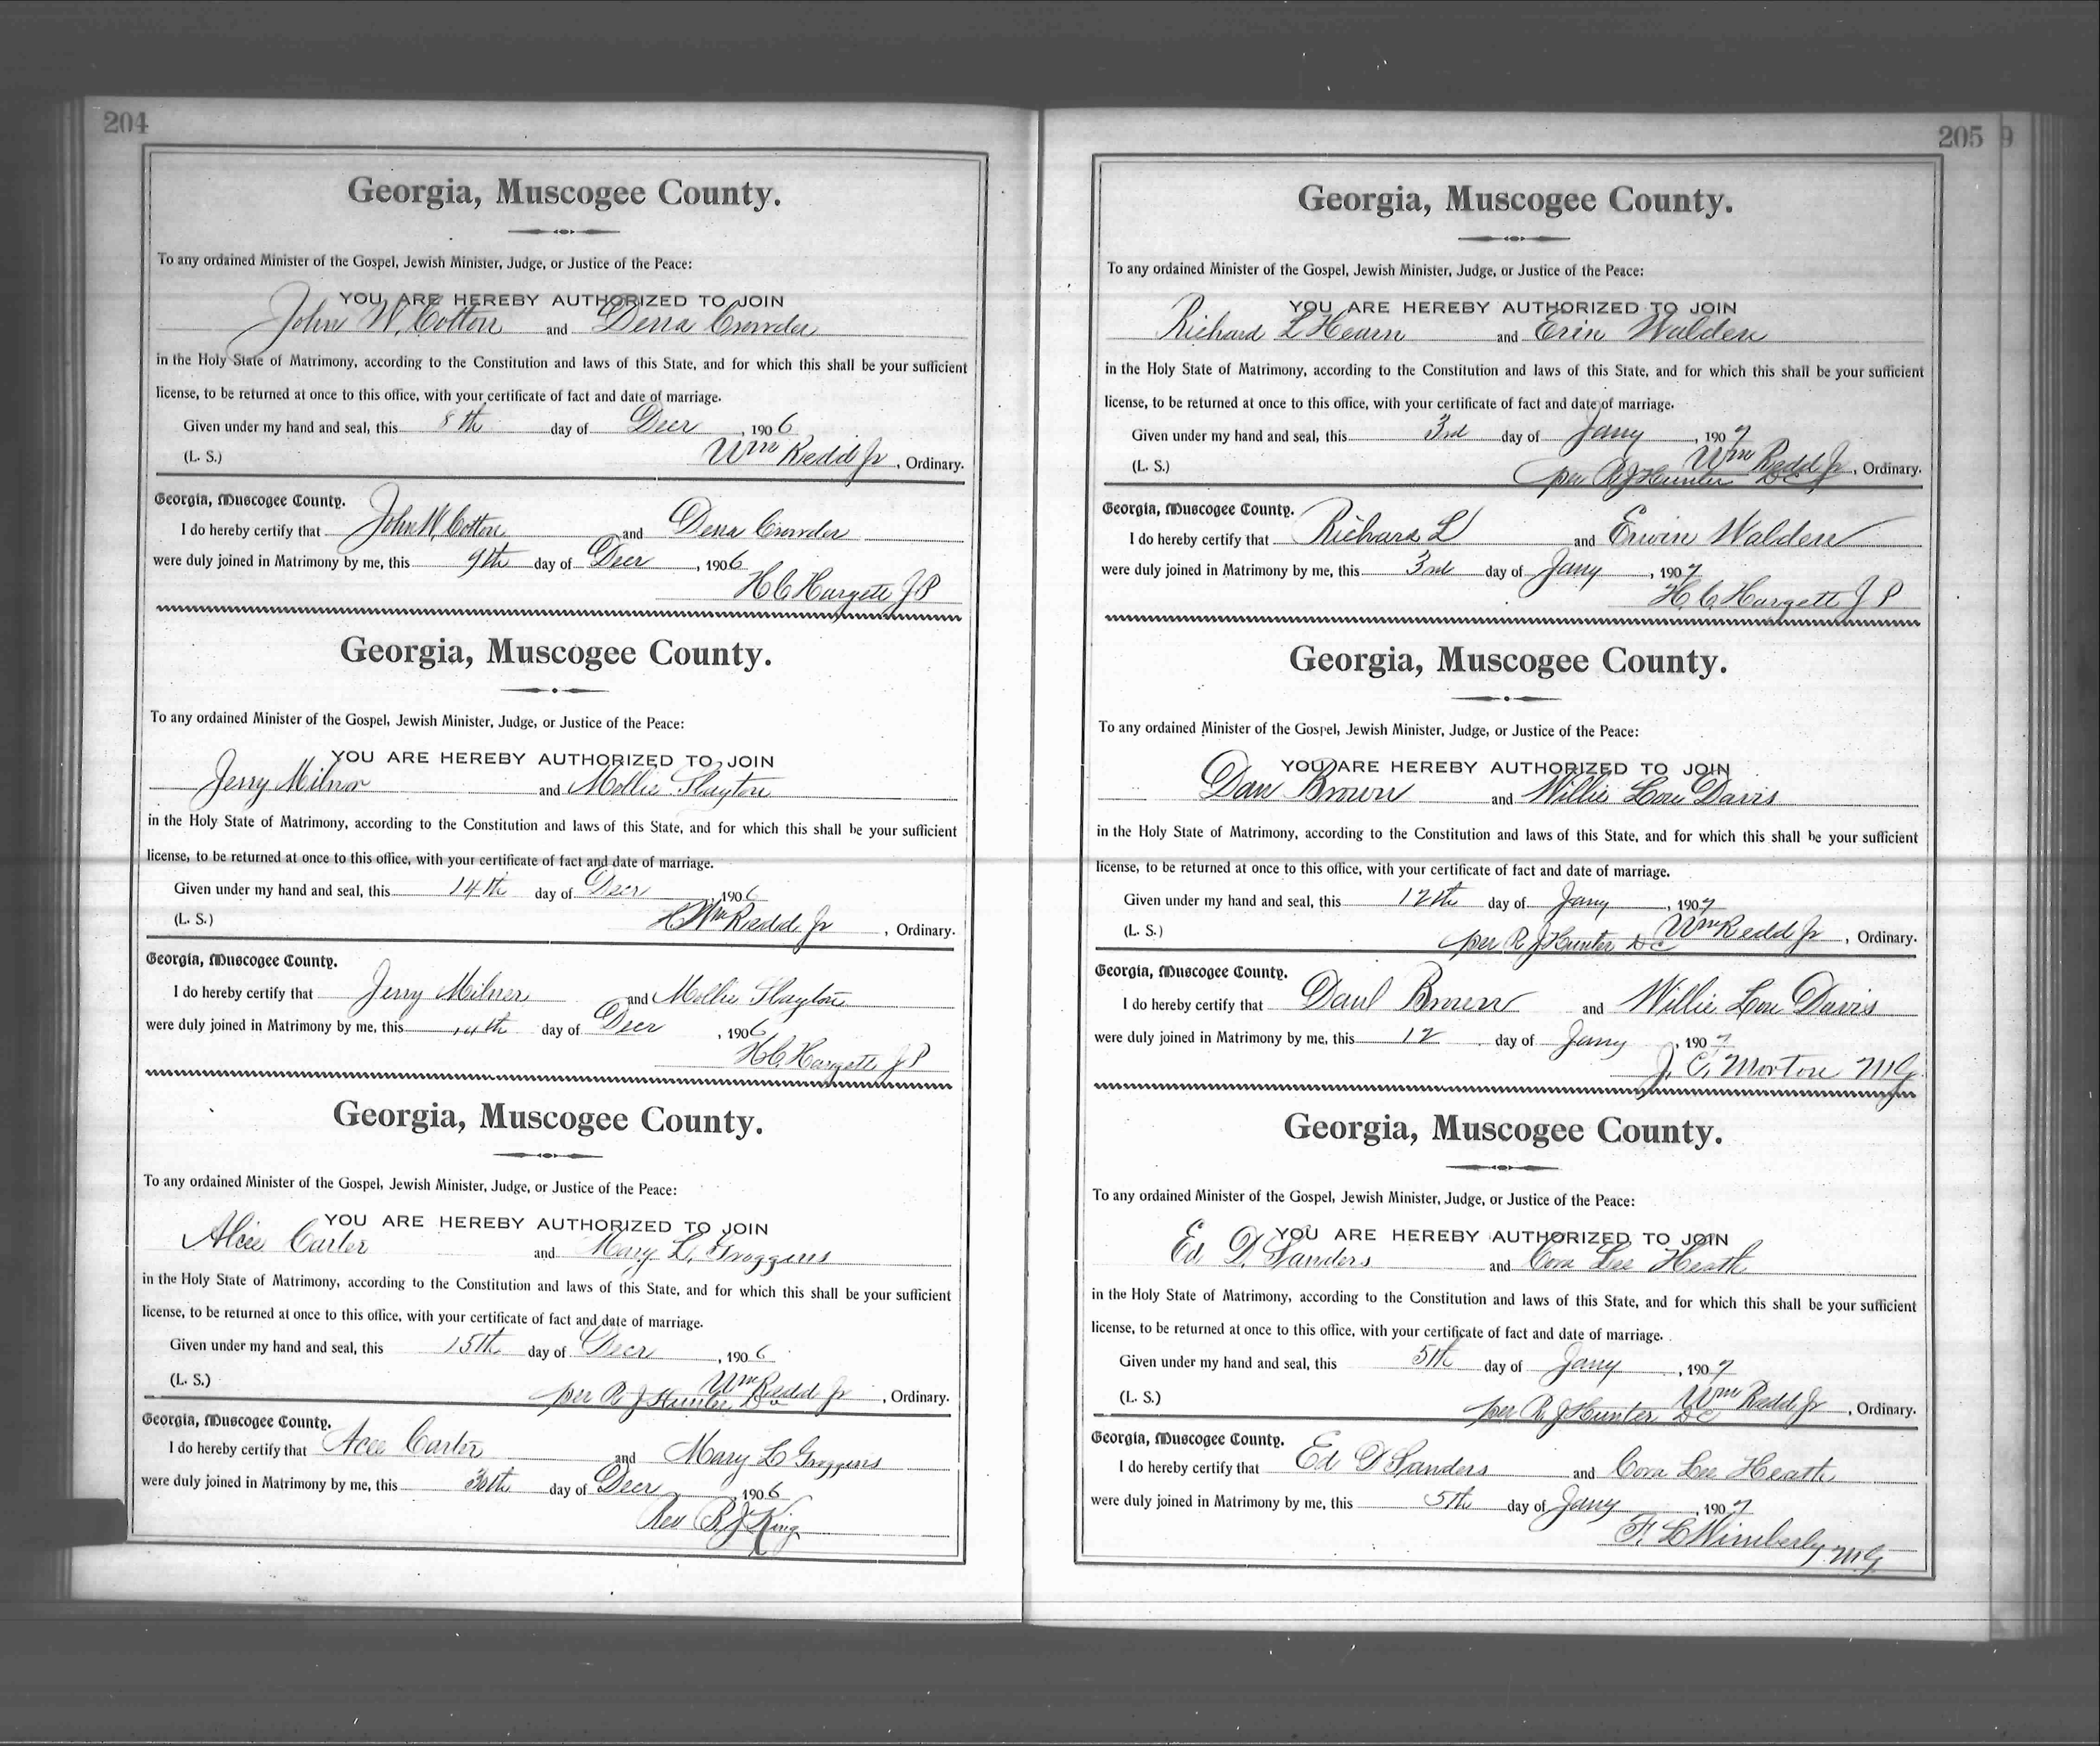 204
Georgia, Muscogee County.
To any ordained Minister of the Gospel, Jewish Minister, Judge, or Justice of the Peace:
YOU ARE HEREBY AUTHORIZED TO JOIN
John W. Cotton and Dena Crowder
in the Holy State of Matrimony, according to the Constitution and laws of this State, and for which this shall be your sufficient
license, to be returned at once to this office, with your certificate of fact and date of marriage.
Given under my hand and seal, this 8th day of Decr, 1906
(L. S.) Wm Redd Jr, Ordinary.
Georgia, Muscogee County.
I do hereby certify that John W. Cotton and Dena Crowder
were duly joined in Matrimony by me, this 9th day of Decr, 1906
H C Hargett J P
Georgia, Muscogee County.
To any ordained Minister of the Gospel, Jewish Minister, Judge, or Justice of the Peace:
YOU ARE HEREBY AUTHORIZED TO JOIN
Jerry Milnor and Mollie Slayton
in the Holy State of Matrimony, according to the Constitution and laws of this State, and for which this shall be your sufficient
license, to be returned at once to this office, with your certificate of fact and date of marriage.
Given under my hand and seal, this 14th day of Decr, 1906
(L. S.) Wm Redd Jr, Ordinary.
Georgia, Muscogee County.
I do hereby certify that Jerry Milner and Mollie Slayton
were duly joined in Matrimony by me, this 14th day of Decr, 1906
H C Hargett J P
Georgia, Muscogee County.
To any ordained Minister of the Gospel, Jewish Minister, Judge, or Justice of the Peace:
YOU ARE HEREBY AUTHORIZED TO JOIN
Alice Carter and Mary L. Groggins
in the Holy State of Matrimony, according to the Constitution and laws of this State, and for which this shall be your sufficient
license, to be returned at once to this office, with your certificate of fact and date of marriage.
Given under my hand and seal, this 15th day of Decr, 1906
Wm Redd Jr
(L. S.) per R J Hunter DC, Ordinary.
Georgia, Muscogee County.
I do hereby certify that Acee Carter and Mary L Groggins
were duly joined in Matrimony by me, this 30th day of Decr, 1906
Rev R. J. King
205 9
Georgia, Muscogee County.
To any ordained Minister of the Gospel, Jewish Minister, Judge, or Justice of the Peace:
YOU ARE HEREBY AUTHORIZED TO JOIN
Richard L Hearn and Erin Walden
in the Holy State of Matrimony, according to the Constitution and laws of this State, and for which this shall be your sufficient
license, to be returned at once to this office, with your certificate of fact and date of marriage.
Given under my hand and seal, this 3rd day of Jany, 1907
(L. S.) Wm Redd Jr, Ordinary.
per R J Hunter DC
Georgia, Muscogee County.
I do hereby certify that Richard L and Erwin Walden
were duly joined in Matrimony by me, this 3rd day of Jany, 1907
H. C. Hargett J P
Georgia, Muscogee County.
To any ordained Minister of the Gospel, Jewish Minister, Judge, or Justice of the Peace:
YOU ARE HEREBY AUTHORIZED TO JOIN
Dan Brown and Willie Lou Davis
in the Holy State of Matrimony, according to the Constitution and laws of this State, and for which this shall be your sufficient
license, to be returned at once to this office, with your certificate of fact and date of marriage.
Given under my hand and seal, this 12th day of Jany, 1907
(L. S.) Wm Redd Jr, Ordinary.
per R J Hunter DC
Georgia, Muscogee County.
I do hereby certify that Daul Brown and Willie Lou Davis
were duly joined in Matrimony by me, this 12 day of Jany, 1907
J. C. Morton MG.
Georgia, Muscogee County.
To any ordained Minister of the Gospel, Jewish Minister, Judge, or Justice of the Peace:
YOU ARE HEREBY AUTHORIZED TO JOIN
Ed D. Sanders and Cora Lee Heath
in the Holy State of Matrimony, according to the Constitution and laws of this State, and for which this shall be your sufficient
license, to be returned at once to this office, with your certificate of fact and date of marriage.
Given under my hand and seal, this 5th day of Jany, 1907
(L. S.) Wm Redd Jr, Ordinary.
per R. J Hunter DC
Georgia, Muscogee County.
I do hereby certify that Ed D Sanders and Cora Lee Heath
were duly joined in Matrimony by me, this 5th day of Jany, 1907
F. L Wimberly MG